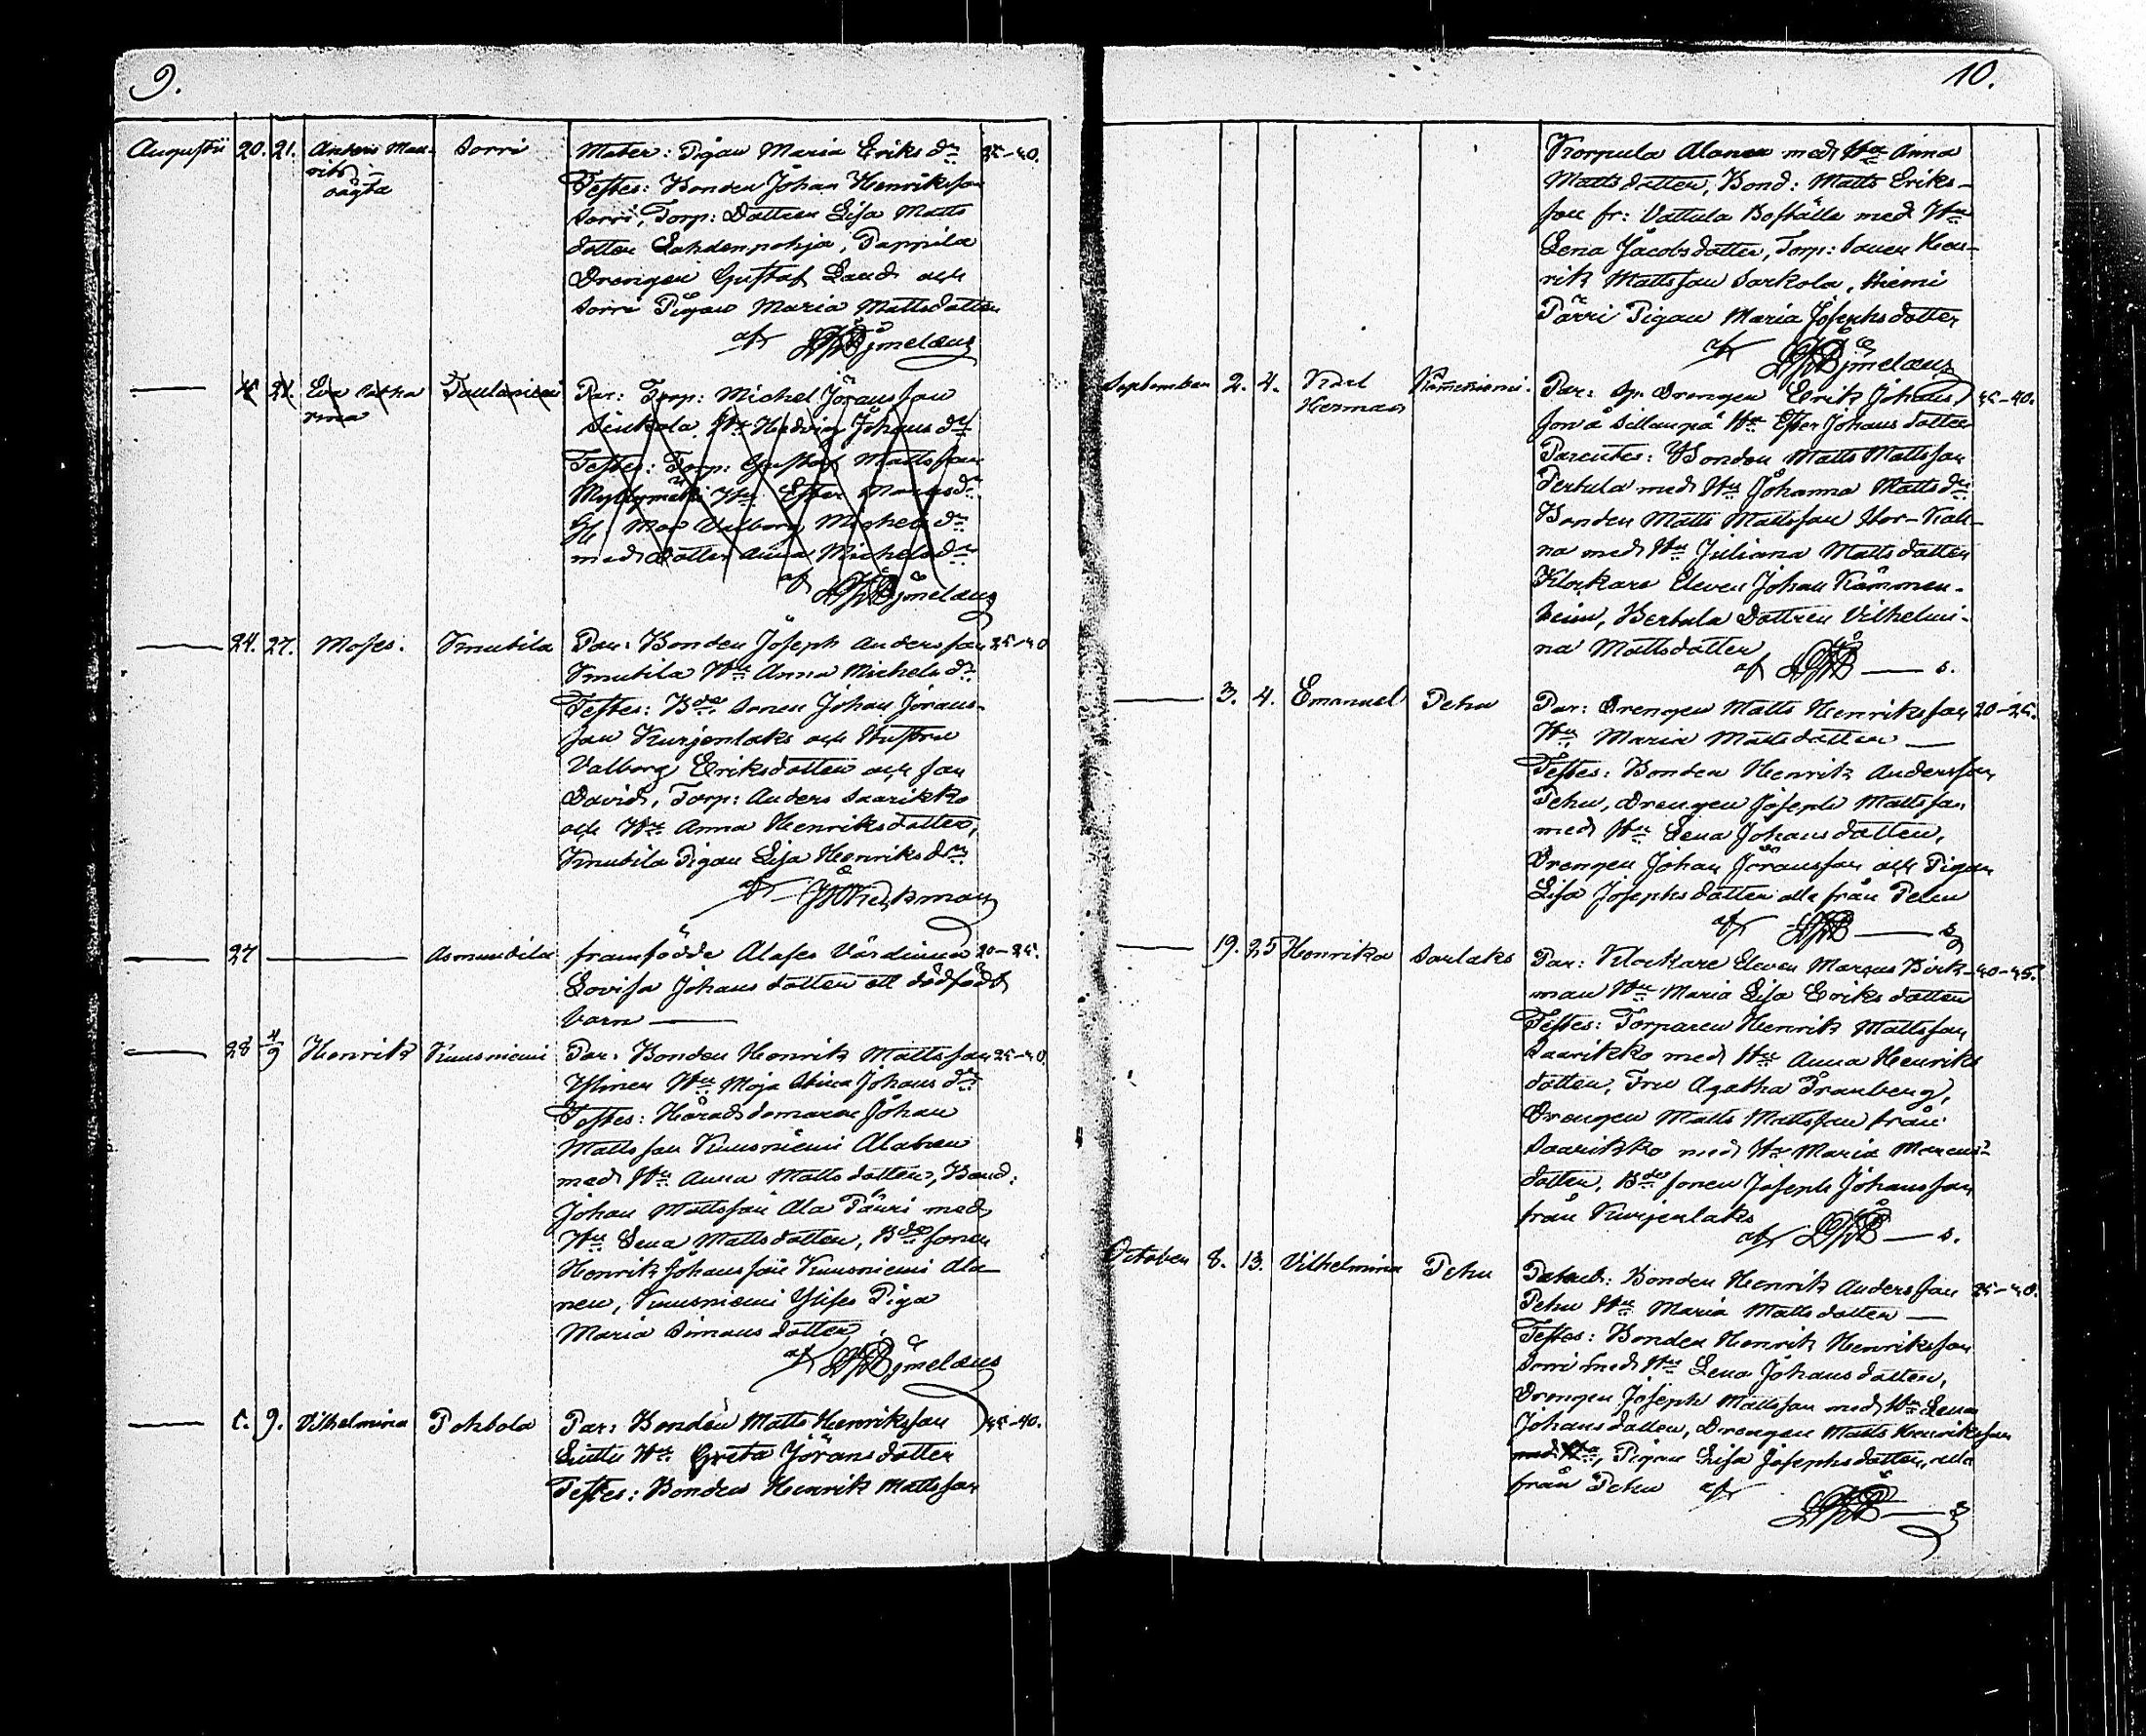 9.
Augusti 20. 21. Anders Mau- Sorri Mater: Pigan Maria Eriks dr 35-40.
rits Testes: Bonden Johan Henriksson
oägta Sorri, Torp: Dottren Lisa Matts
dotter Lahdenpohja, Pappila
Drengen Gustaf Land och
Sorri Pigan Maria Mattsdotter
af
21. Eva Catha Par: Torp: Michel Jöransson
rina Sinkola Hu Hedvig Johans dr
Testes: Torp: Gustaf Mattsson
Myllymäki Hu Ester dr
Mor Valborg Michels dr
med dotter Anna Michels dr
af
24. 27. Moses. Knutila Par: Bonden Joseph Andersson 35-40
Knutila Hu Anna Michels dr
Testes: Bde Sonen Johan Jörans-
son Kurjenlaks och Hustru
Valborg Eriksdotter och son
David, Torp: Anders Saarikko
och Hu Anna Henriksdotter,
Knutila Pigan Lisa Henriks dr
af
27 Asmundila framfödde Alases Värdinna 20-25.
Lovisa Johans dotter ett dödfödt
barn
28 4/9 Henrik Kuusniemi Par: Bonden Henrik Mattsson 35-40
Ylinen Hu Maja Stina Johans dr
Testes: Häradsdomaren Johan
Mattsson Kuusniemi
med Hu Anna Matts dotter, Bond:
Johan Mattsson Ala Pärri med
Hu Lena Mattsdotter, Bde sonen
Henrik Johansson Kuusniemi Ala-
nen, Kuusniemi Piga
Maria Simons dotter
af
9. Vilhelmina Pohtola Par: Bonden Matts Henriksson 35-40.
Hu Greta Jörans dotter
Testes: Bonden Henrik Mattsson
10.
Korpula Alanen med Hu Anna
Mattsdotter, Bond: Matts Eriks-
son fr: Vattula Boställe med Hu
Lena Jacobsdotter, Torp: Sonen Hen-
rik Mattsson Sarkola, Niemi
Pärri Pigan Maria Josephsdotter
af
September 2. 4. Karl Kämmeniemi. Par: Drengen Erik Johans 35-40.
Herman son å Sillanpä Hu Ester Johans dotter
Parentes: Bonden Matts Mattsson
Pertula med Hu Johanna Matts dr
Bonden Matts Mattsson Stor-Kau-
na med Hu Juliana Matts dotter
Klockare Eleven Johan Kämmen-
heim, Bertula Dottren Vilhelmi-
na Mattsdotter
af s.
3. 4. Emanuel Pehu Par: Drengen Matts Henriksson 20-25.
Hu Maria Matts dotter
Testes: Bonden Henrik Andersson
Pehu, Drengen Joseph Mattsson
med Hu Lena Johans dotter,
Drengen Johan Jöransson och Pigan
Lisa Josephs dotter alla från Pehu
af s
19. 25 Henrika Sorlaks Par: Klockare Eleven Marcus Birk- 40-45.
man Hu Maria Lisa Eriks dotter
Testes: Torparen Henrik Mattsson
Saarikko med Hu Anna Henriks
dotter, Fru Agatha Granberg,
Drengen Matts Mattsson från
Saarikko med Hu Maria Marcus-
dotter, Bde sonen Joseph Johansson
från Kurjenlaks
af s.
October 8. 13. Vilhelmina Pehu Bonden Henrik Andersson 35-40.
Pehu Hu Maria Mattsdotter
Testes: Bonden Henrik Henriksson
Sorri med Hu Lena Johans dotter,
Drengen Joseph Mattsson med Hu Lena
Johans dotter, Drengen Matts Henriksson
Pigan Lisa Josephs dotter, alla
från Pehu af